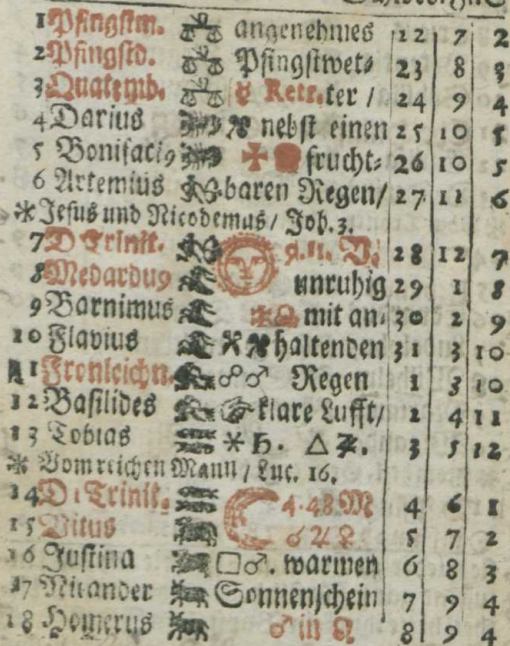 1 Pfingstm. ♎ angenehmes 12 7 2
2 Pfingstd. ♎ Pfingstwet⸗ 23 8 3
3 Quatemb. ♎ ☿ Retr. ter / 24 9 4
4 Darius nebst einen 25 10 5
5 Bonifaciꝰ frucht⸗ 26 10 5
6 Artemius baren Regen/ 27 11 6
* Jesus und Nicodemus / Joh. 3.
7 D Trinit. 9. 11. V. 28 12 7
8 Medardus unruhig 29 1 8
9 Barnimus mit an⸗ 30 2 9
10 Flavius haltenden 31 3 10
11 Fronleichn. ☍ ♂ Regen 1 3 10
12 Basilides ☞ klare Lufft/ 2 4 11
13 Tobias * ♄. △ ♃. 3 5 12
* Vom reichen Mann / Luc. 16.
14 D 1 Trinit. 4. 48. M 4 6 1
15 Vitus ☌ ♃ ☿ 5 7 2
16 Justina □ ♂. warmen 6 8 3
17 Nicander Sonnenschein 7 9 4
18 Homerus ♂ in ♌ 8 9 4